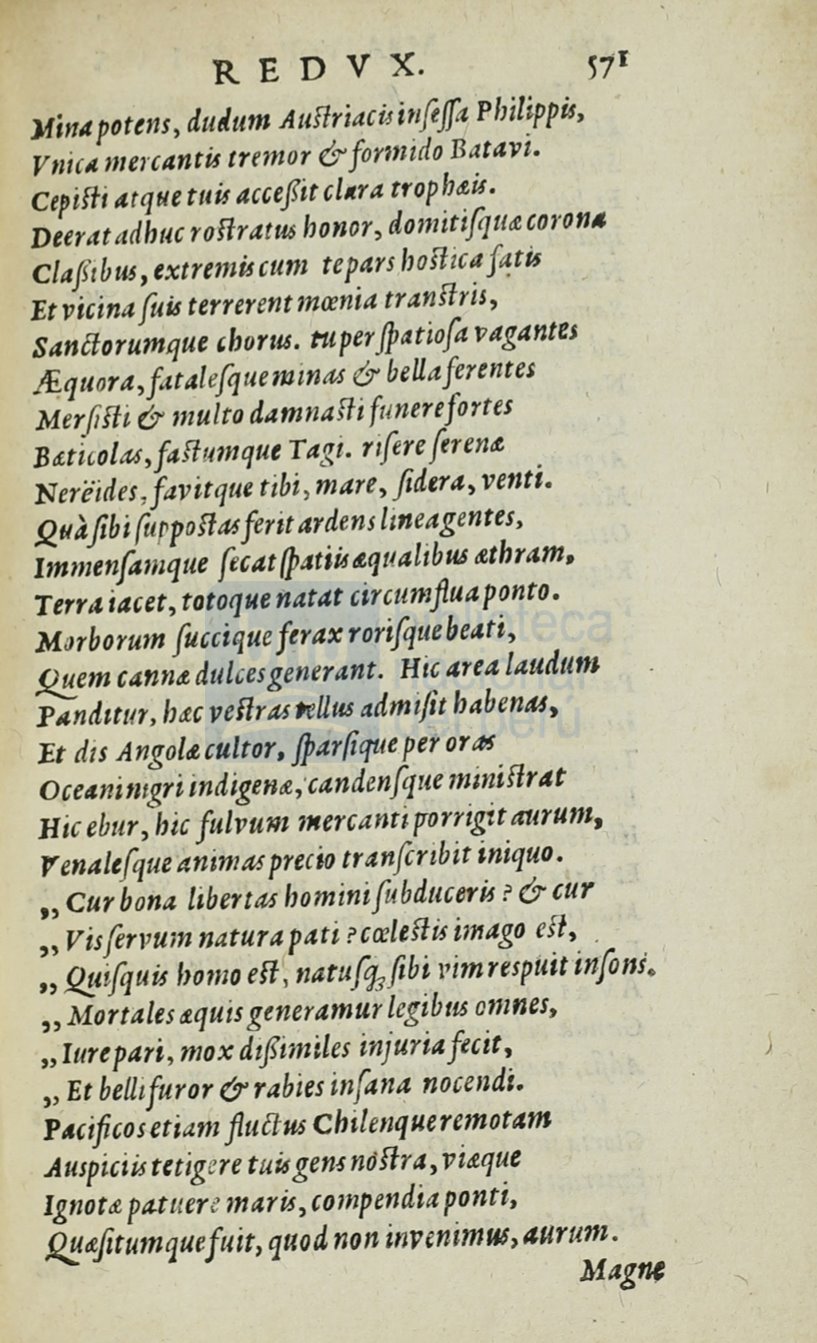 REDVX. 571
Mina potens, dudum Austriacis insessa Philippis,
Vnica mercantis tremor & formido Batavi.
Cepisti atque tuis acceßit clara trophæis.
Deerat adhuc rostratus honor, domitisquæ corona
Claßibus, extremis cum te pars hostica fatis
Et vicina suis terrerent mœnia transtris,
Sanctorumque chorus. tu per spatiosa vagantes
Æquora, fatalesque minas & bella ferentes
Mersisti & multo damnasti funere fortes
Bæticolas, fastumque Tagi. risere serenæ
Nerëides, favitque tibi, mare, sidera, venti.
Quà sibi suppostas ferit ardens linea gentes,
Immensamque secat spatiis æqualibus æthram,
Terra iacet, totoque natat circumflua ponto.
Morborum succique ferax rorisque beati,
Quem cannæ dulces generant. Hic area laudum
Panditur, hæc vestras tellus admisit habenas,
Et dis Angolæ cultor, sparsique per oras
Oceani nigri indigenæ, candensque ministrat
Hic ebur, hic fulvum mercanti porrigit aurum,
Venalesque animas precio transcribit iniquo.
„ Cur bona libertas homini subduceris ? & cur
„ Vis servum natura pati ? cœlestis imago est,
„ Quisquis homo est, natusq; sibi vim respuit insons.
„ Mortales æquis generamur legibus omnes,
„ Iure pari, mox dißimiles injuria fecit,
„ Et belli furor & rabies insana nocendi.
Pacificos etiam fluctus Chilenque remotam
Auspiciis tetigere tuis gens nostra, viæque
Ignotæ patuere maris, compendia ponti,
Quæsitumque fuit, quod non invenimus, aurum.
Magne